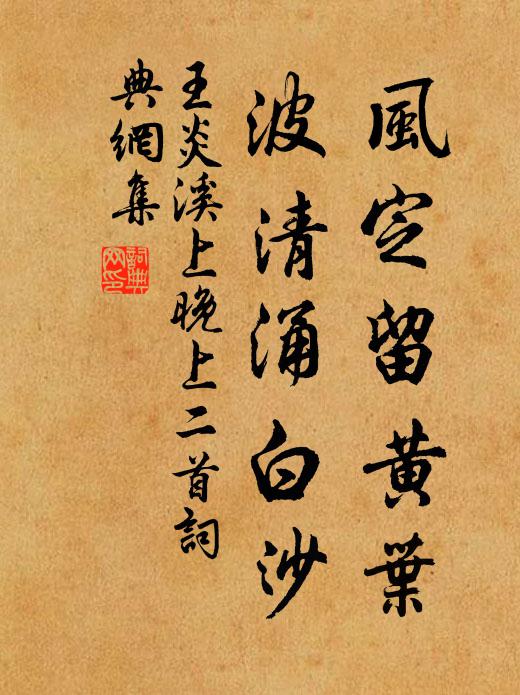 風定留黄葉
波清涌白沙
王炎溪上晚上二首詞
典網集
詞典網印